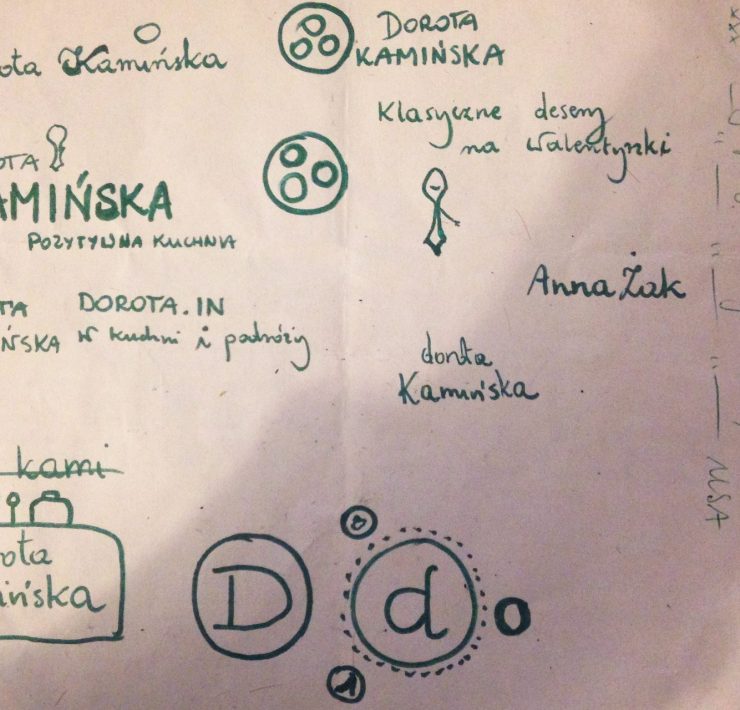 ota Kamińska
DOROTA
KAMIŃSKA
Klasyczne desery
na Walentynki
OTA
AMIŃSKA
POZYTYWNA KUCHNIA
Anna Żak
TA DOROTA.IN
ŃSKA w kuchni i podróży
dorota
Kamińska
kami
ota
ińska
D
d
o
MSA